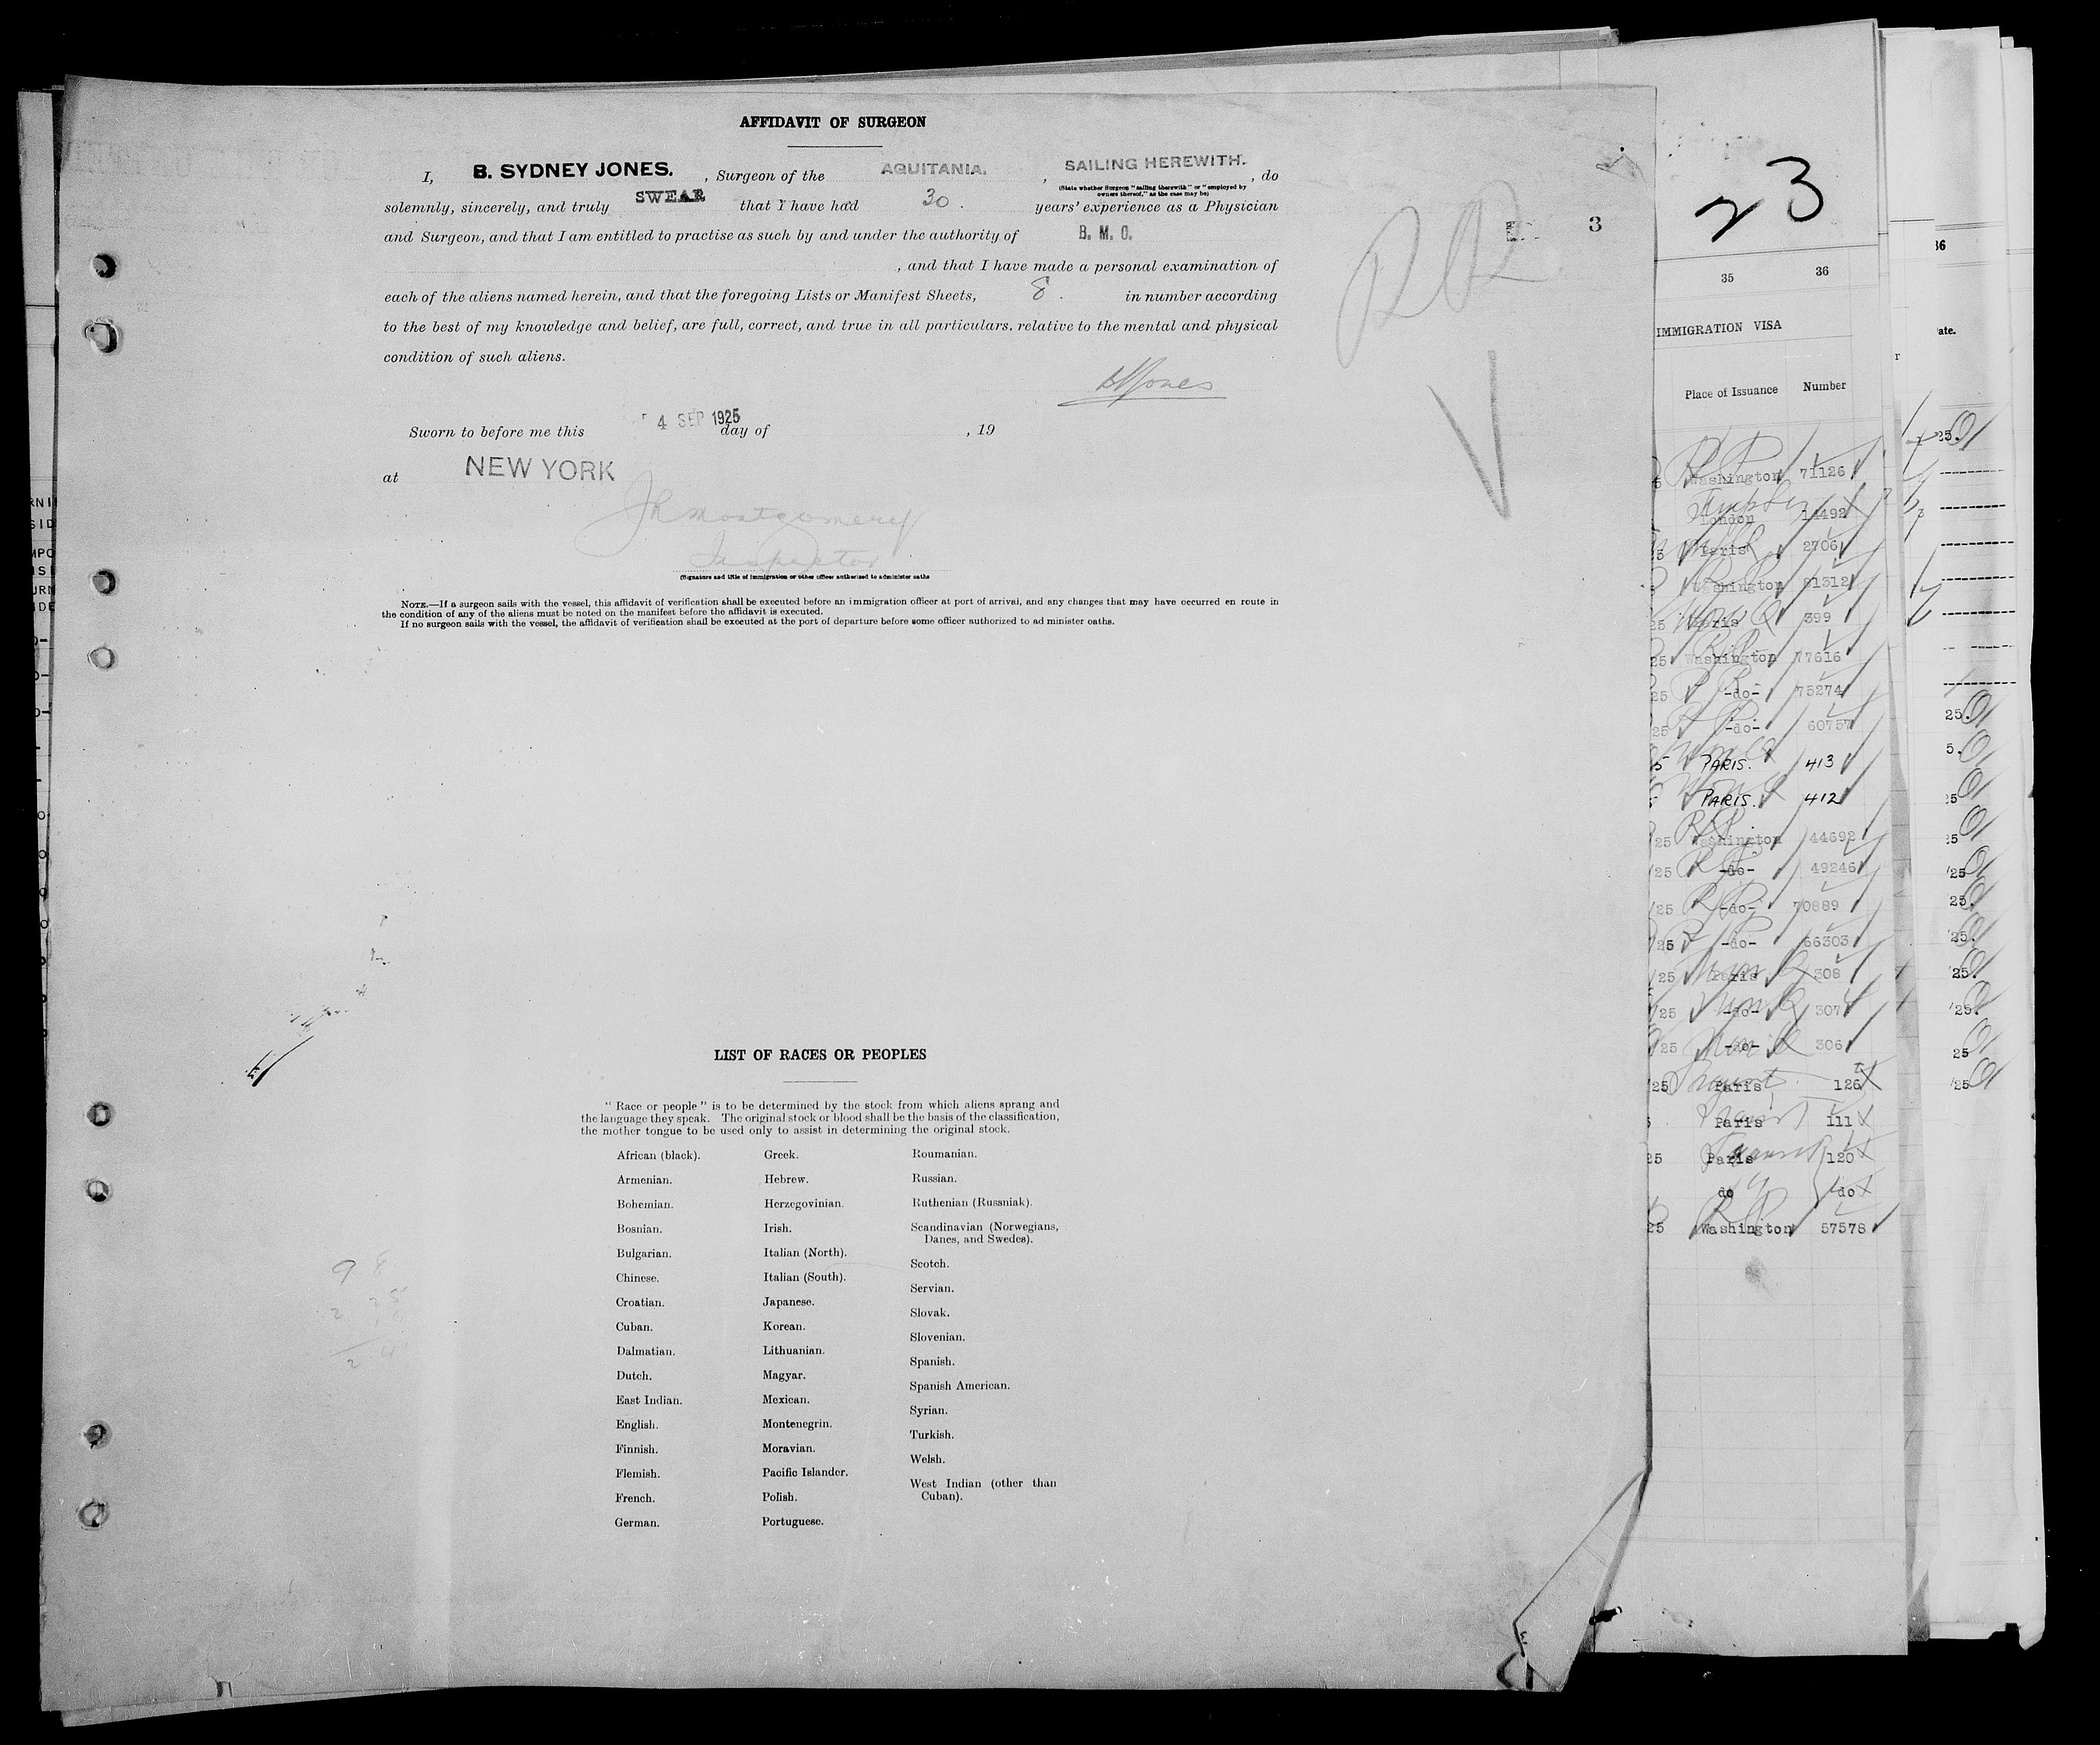 AFFIDAVIT OF SURGEON
I, B. SYDNEY JONES. , Surgeon of the AQUITANIA. , SAILING HEREWITH. , do
(State whether Surgeon "sailing therewith" or "employed by
owners thereof," as the case may be)
solemnly, sincerely, and truly SWEAR that I have had 30. years' experience as a Physician
and Surgeon, and that I am entitled to practise as such by and under the authority of B. M. O.
, and that I have made a personal examination of
each of the aliens named herein, and that the foregoing Lists or Manifest Sheets, 8. in number according
to the best of my knowledge and belief, are full, correct, and true in all particulars. relative to the mental and physical
condition of such aliens.
Jones
Sworn to before me this 4 SEP 1925 day of , 19
at NEW YORK
JR Montgomery
Inspector
(Signature and title of immigration or other officer authorized to administer oaths
NOTE.—If a surgeon sails with the vessel, this affidavit of verification shall be executed before an immigration officer at port of arrival, and any changes that may have occurred en route in
the condition of any of the aliens must be noted on the manifest before the affidavit is executed.
If no surgeon sails with the vessel, the affidavit of verification shall be executed at the port of departure before some officer authorized to ad minister oaths.
3
LIST OF RACES OR PEOPLES
"Race or people" is to be determined by the stock from which aliens sprang and
the language they speak. The original stock or blood shall be the basis of the classification,
the mother tongue to be used only to assist in determining the original stock.
African (black).
Armenian.
Bohemian.
Bosnian.
Bulgarian.
Chinese.
Croatian.
Cuban.
Dalmatian.
Dutch.
East Indian.
English.
Finnish.
Flemish.
French.
German.
Greek.
Hebrew.
Herzegovinian.
Irish.
Italian (North).
Italian (South).
Japanese.
Korean.
Lithuanian.
Magyar.
Mexican.
Montenegrin.
Moravian.
Pacific Islander.
Polish.
Portuguese.
Roumanian.
Russian.
Ruthenian (Russniak).
Scandinavian (Norwegians,
Danes, and Swedes).
Scotch.
Servian.
Slovak.
Slovenian.
Spanish.
Spanish American.
Syrian.
Turkish.
Welsh.
West Indian (other than
Cuban).
23
35 36
IMMIGRATION VISA
Place of Issuance Number
Washington 71126
London 14492
Paris 2706
Washington 81312
25 Paris 399
25 Washington 77616
25 -do- 75274
25 -do- 60757
5 PARIS. 413
PARIS. 412
25 Washington 44692
/25 -do- 49246
/25 -do- 70889
/25 -do- 66303
/25 Paris 308
/25 -do- 307
/25 -do- 306
/25 Paris 126
Paris 111
25 Paris 120
do do
25 Washington 57578
36
ate.